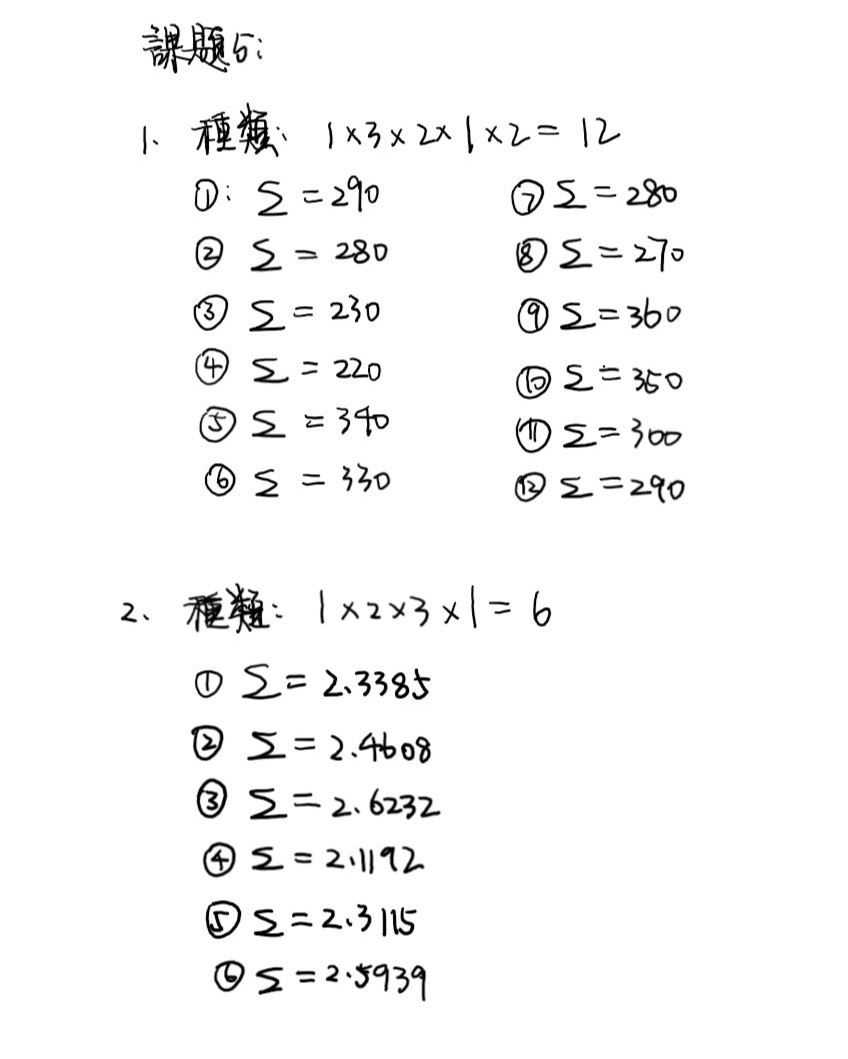 課題5:
1. 種類: 1×3×2×1×2=12
①: Σ=290 ⑦ Σ=280
② Σ=280 ⑧ Σ=270
③ Σ=230 ⑨ Σ=360
④ Σ=220 ⑩ Σ=350
⑤ Σ=340 ⑪ Σ=300
⑥ Σ=330 ⑫ Σ=290
2、種類: 1×2×3×1=6
① Σ=2.3385
② Σ=2.4608
③ Σ=2.6232
④ Σ=2.1192
⑤ Σ=2.3115
⑥ Σ=2.5939